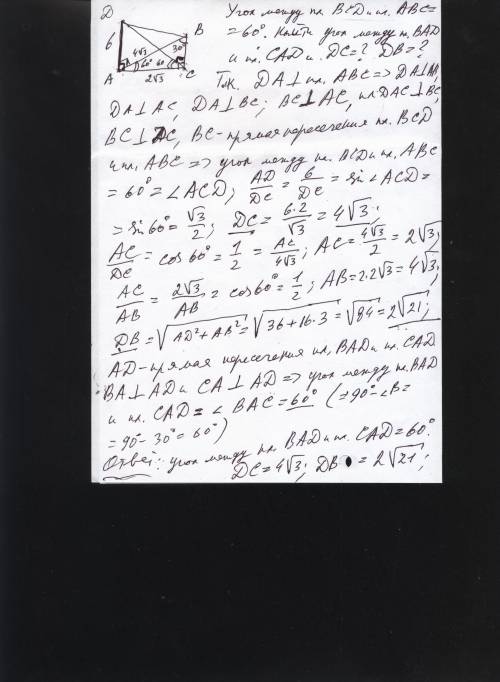 D
B
6
4√3
30°
60° 60
A
2√3
C
Угол между пл. BCD и пл. ABC=
=60°. Найти угол между пл. BAD
и пл. CAD и DC=? DB=?
Т.к. DA⊥пл. ABC => DA⊥AB,
DA⊥AC, DA⊥BC; BC⊥AC, пл DAC⊥BC,
BC⊥DC, BC-прямая пересечения пл. BCD
и пл. ABC => угол между пл. BCD и пл. ABC
= 60° = ∠ACD; AD/DC = 6/DC = sin ∠ACD =
= sin 60° = √3/2; DC = 6·2/√3 = 4√3;
AC/DC = cos 60° = 1/2 = AC/4√3; AC = 4√3/2 = 2√3;
AC/AB = 2√3/AB = cos 60° = 1/2; AB = 2·2√3 = 4√3;
DB = √AD²+AB² = √36+16·3 = √84 = 2√21;
AD-прямая пересечения пл. BAD и пл. CAD
BA⊥AD и CA⊥AD => угол между пл. BAD
и пл. CAD = ∠BAC = 60° (=90°-∠B=
=90°-30°=60°)
Ответ: угол между пл. BAD и пл. CAD=60°.
DC=4√3; DB = 2√21;